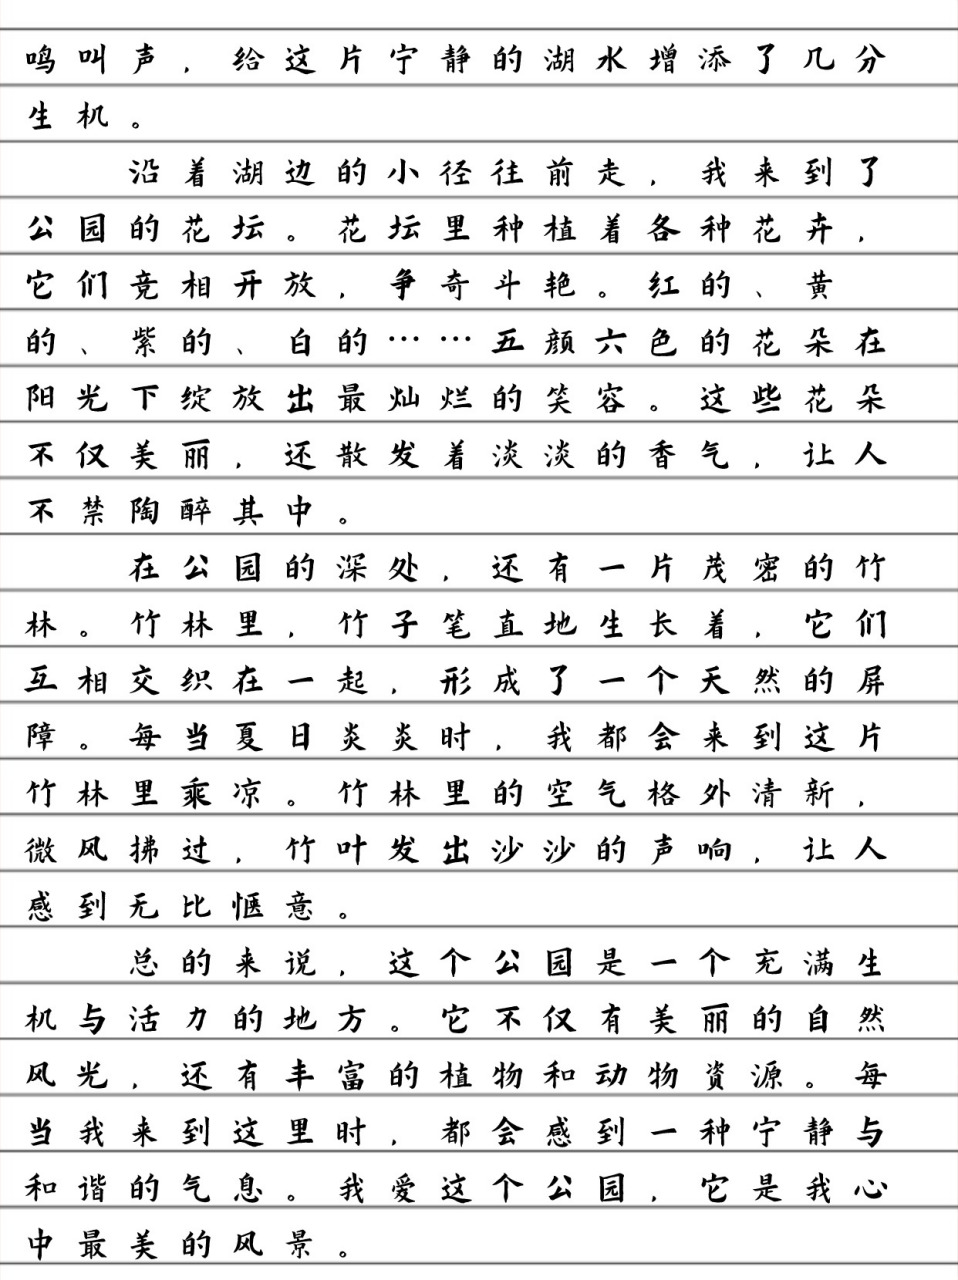 鸣叫声，给这片宁静的湖水增添了几分
生机。
沿着湖边的小径往前走，我来到了
公园的花坛。花坛里种植着各种花卉，
它们竞相开放，争奇斗艳。红的、黄
的、紫的、白的……五颜六色的花朵在
阳光下绽放出最灿烂的笑容。这些花朵
不仅美丽，还散发着淡淡的香气，让人
不禁陶醉其中。
在公园的深处，还有一片茂密的竹
林。竹林里，竹子笔直地生长着，它们
互相交织在一起，形成了一个天然的屏
障。每当夏日炎炎时，我都会来到这片
竹林里乘凉。竹林里的空气格外清新，
微风拂过，竹叶发出沙沙的声响，让人
感到无比惬意。
总的来说，这个公园是一个充满生
机与活力的地方。它不仅有美丽的自然
风光，还有丰富的植物和动物资源。每
当我来到这里时，都会感到一种宁静与
和谐的气息。我爱这个公园，它是我心
中最美的风景。